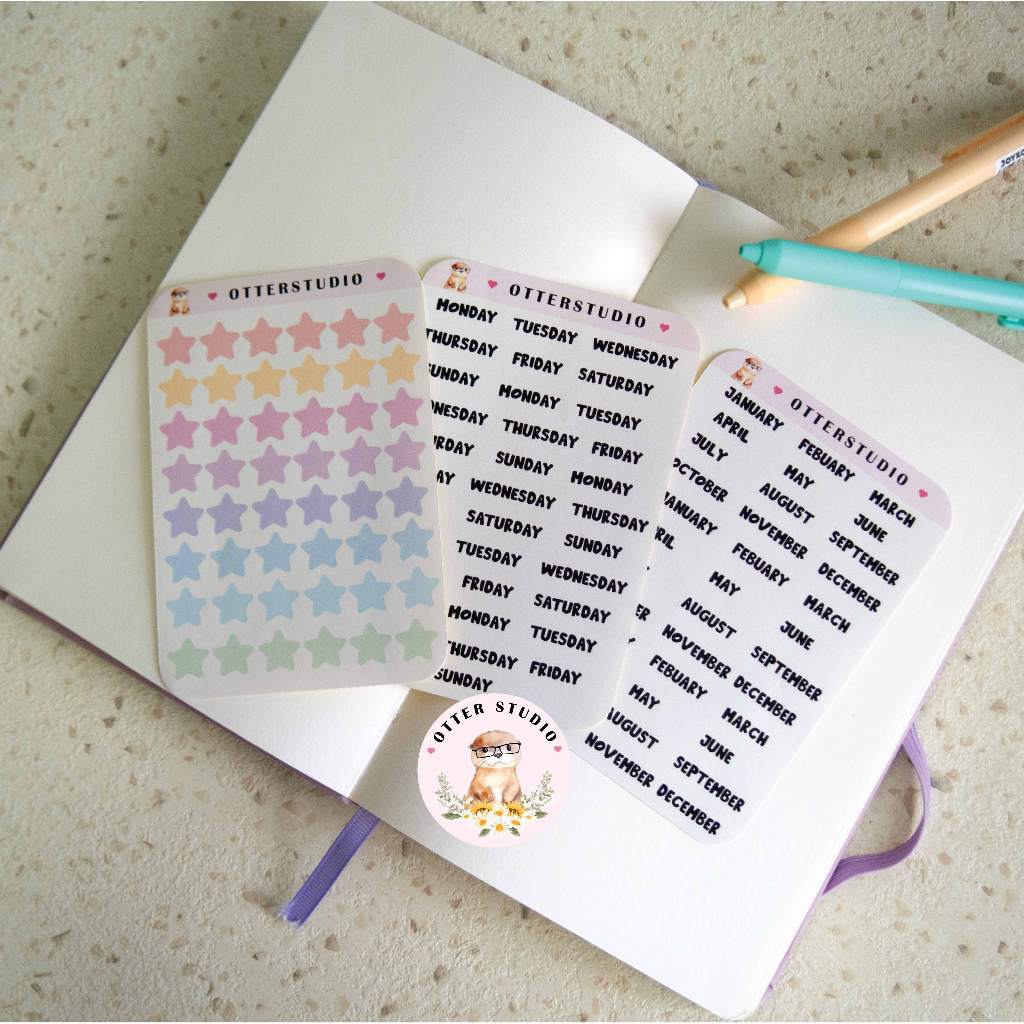 OTTERSTUDIO
OTTERSTUDIO
MONDAY TUESDAY WEDNESDAY
THURSDAY FRIDAY SATURDAY
SUNDAY MONDAY TUESDAY
DNESDAY THURSDAY FRIDAY
RDAY SUNDAY MONDAY
AY WEDNESDAY THURSDAY
SATURDAY SUNDAY
TUESDAY WEDNESDAY
FRIDAY SATURDAY
MONDAY TUESDAY
THURSDAY FRIDAY
SUNDAY
OTTERSTUDIO
JANUARY FEBUARY MARCH
APRIL MAY JUNE
JULY AUGUST SEPTEMBER
OCTOBER NOVEMBER DECEMBER
JANUARY FEBUARY MARCH
RIL MAY JUNE
AUGUST SEPTEMBER
ER NOVEMBER DECEMBER
FEBUARY MARCH
MAY JUNE
AUGUST SEPTEMBER
NOVEMBER DECEMBER
OTTER STUDIO